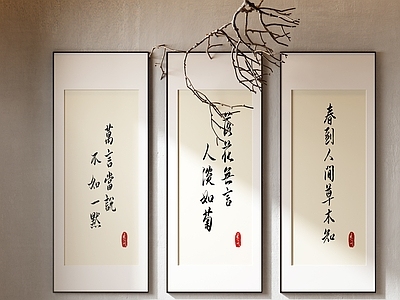 春到人間草木知
落花無言
人淡如菊
萬言當說
不如一默